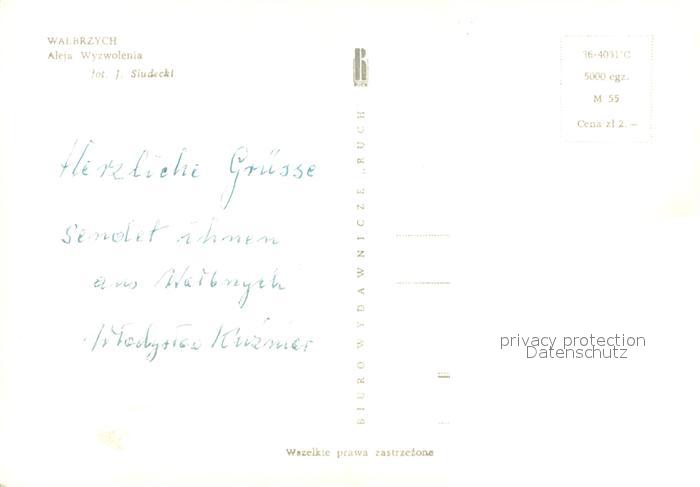 WAŁBRZYCH
Aleja Wyzwolenia
fot. J. Siudecki
Herzliche Grüsse
sendet ihnen
aus Wałbrzych
Władysław Kuźniar
BIURO WYDAWNICZE „RUCH
RUCH
36-4031°C
5000 egz.
M 55
Cena zł 2.—
privacy protection
Datenschutz
Wszelkie prawa zastrzeżone